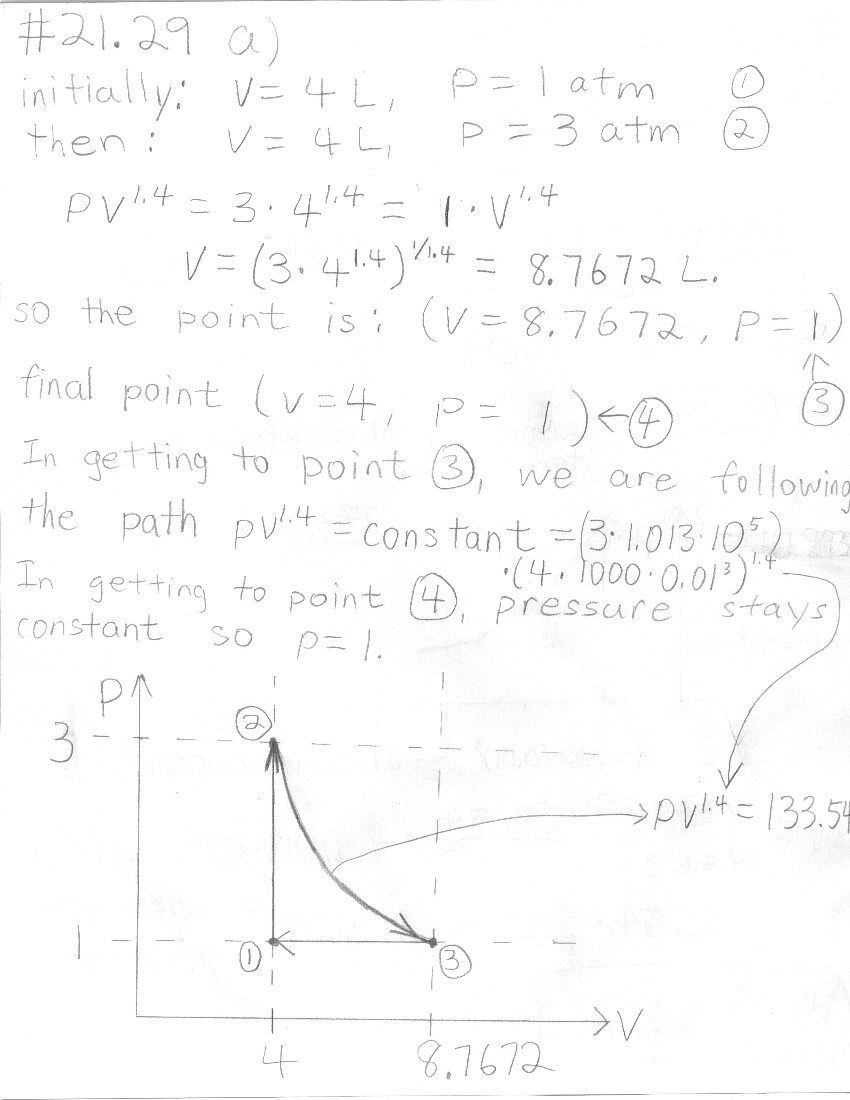 #21.29 a)
initially: V = 4 L, P = 1 atm ①
then: V = 4 L, P = 3 atm ②
PV^1.4 = 3 · 4^1.4 = 1 · V^1.4
V = (3 · 4^1.4)^1/1.4 = 8.7672 L.
so the point is: (V = 8.7672, P = 1)
↑
③
final point (V = 4, P = 1) ← ④
In getting to point ③, we are following
the path PV^1.4 = constant = (3 · 1.013 · 10^5)
· (4 · 1000 · 0.01^3)^1.4
In getting to point ④, pressure stays
constant so P = 1.
P
②
3
→ PV^1.4 = 133.54
1
① ③
V
4 8.7672